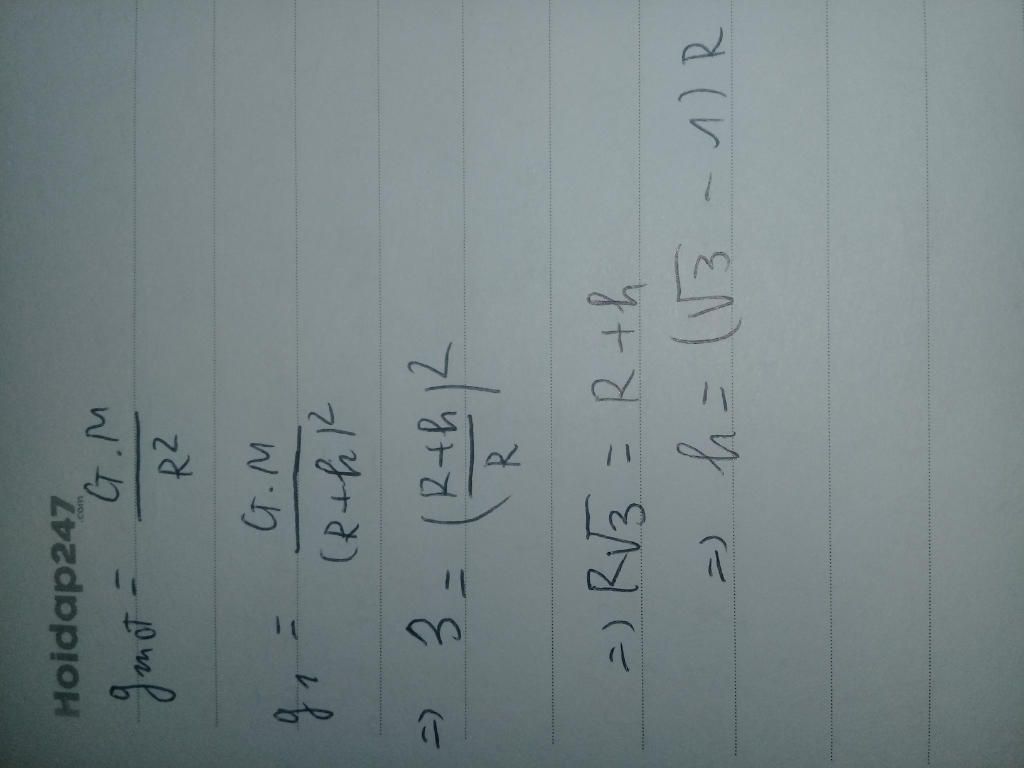 Hoidap247
.com
g mặt = G.M / R²
g₁ = G.M / (R+h)²
=> 3 = (R+h / R)²
=> R√3 = R + h
=> h = (√3 - 1) R